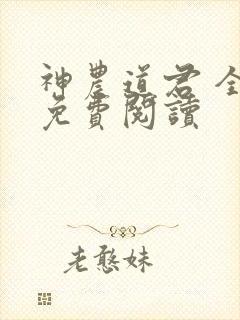 神農道君 全
免費閱讀
老憨妹